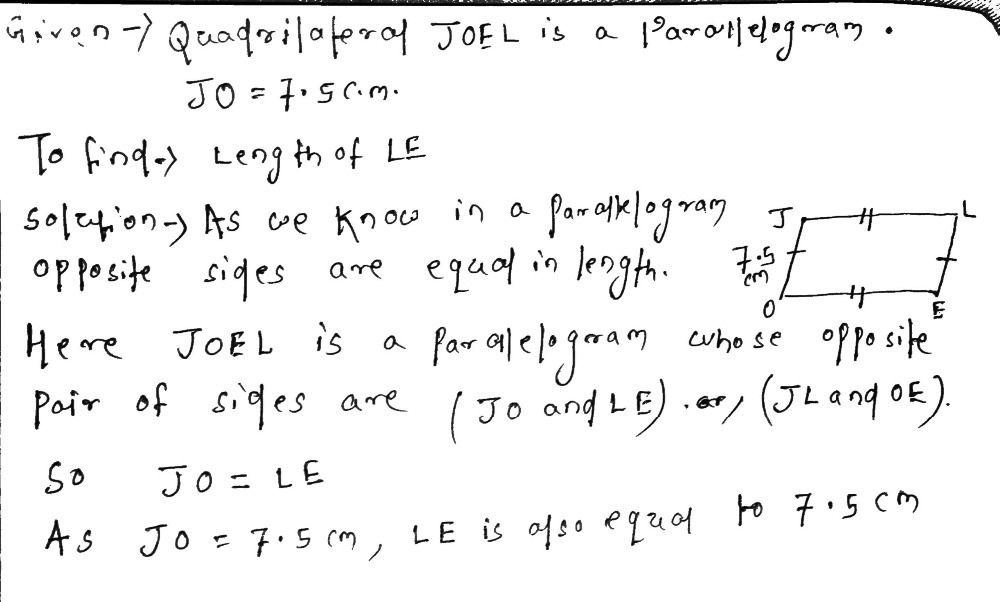 Given → Quadrilateral JOEL is a Parallelogram.
JO = 7.5 c.m.
To find → Length of LE
Solution → As we know in a parallelogram
opposite sides are equal in length.
J
L
7.5
cm
O
E
Here JOEL is a parallelogram whose opposite
pair of sides are (JO and LE), (JL and OE).
So JO = LE
As JO = 7.5 cm, LE is also equal to 7.5 cm